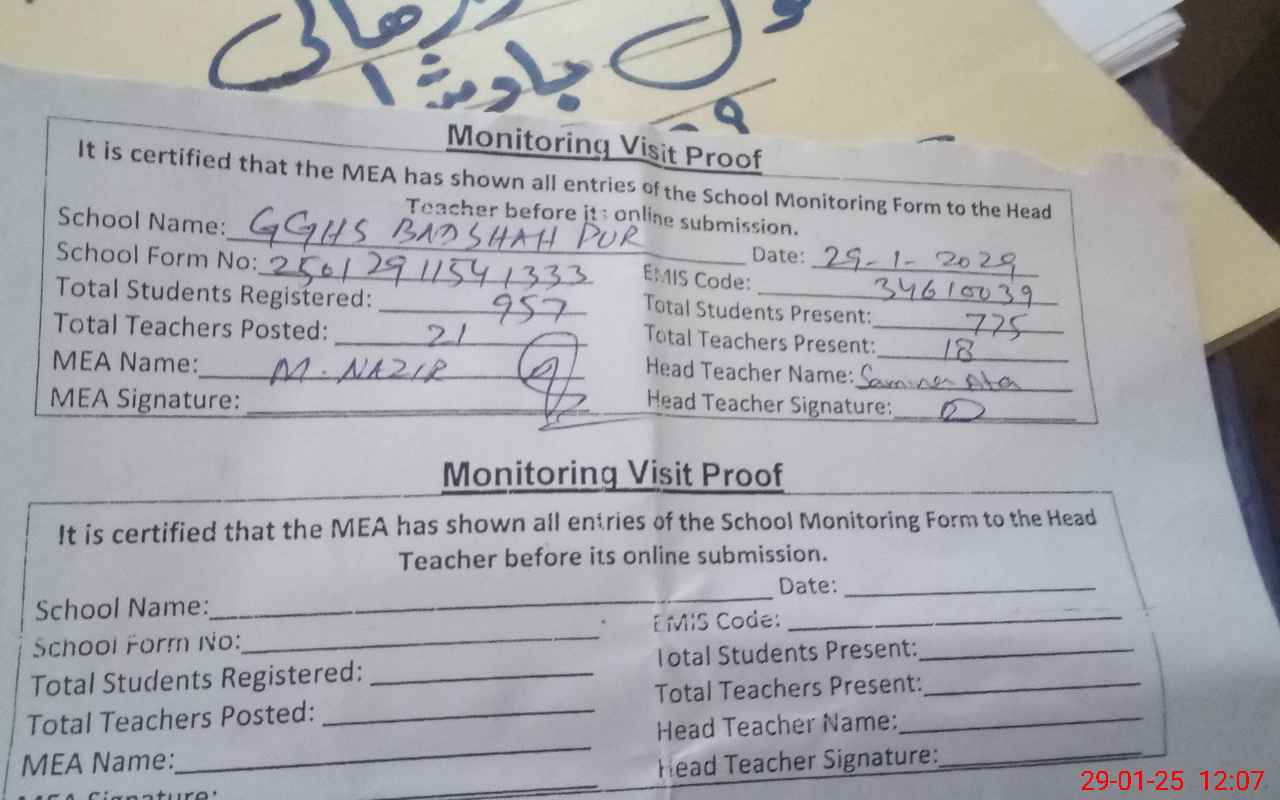 Monitoring Visit Proof
It is certified that the MEA has shown all entries of the School Monitoring Form to the Head
Teacher before its online submission.
School Name: GGHS BADSHAH PUR Date: 29-1-2029
School Form No: 25012911541333 EMIS Code: 34610039
Total Students Registered: 957 Total Students Present: 775
Total Teachers Posted: 21 Total Teachers Present: 18
MEA Name: M. NAZIR Head Teacher Name: Samina Ata
MEA Signature: Head Teacher Signature:
Monitoring Visit Proof
It is certified that the MEA has shown all entries of the School Monitoring Form to the Head
Teacher before its online submission.
School Name: Date:
School Form No: EMIS Code:
Total Students Registered: Total Students Present:
Total Teachers Posted: Total Teachers Present:
MEA Name: Head Teacher Name:
MEA Signature: Head Teacher Signature:
29-01-25 12:07